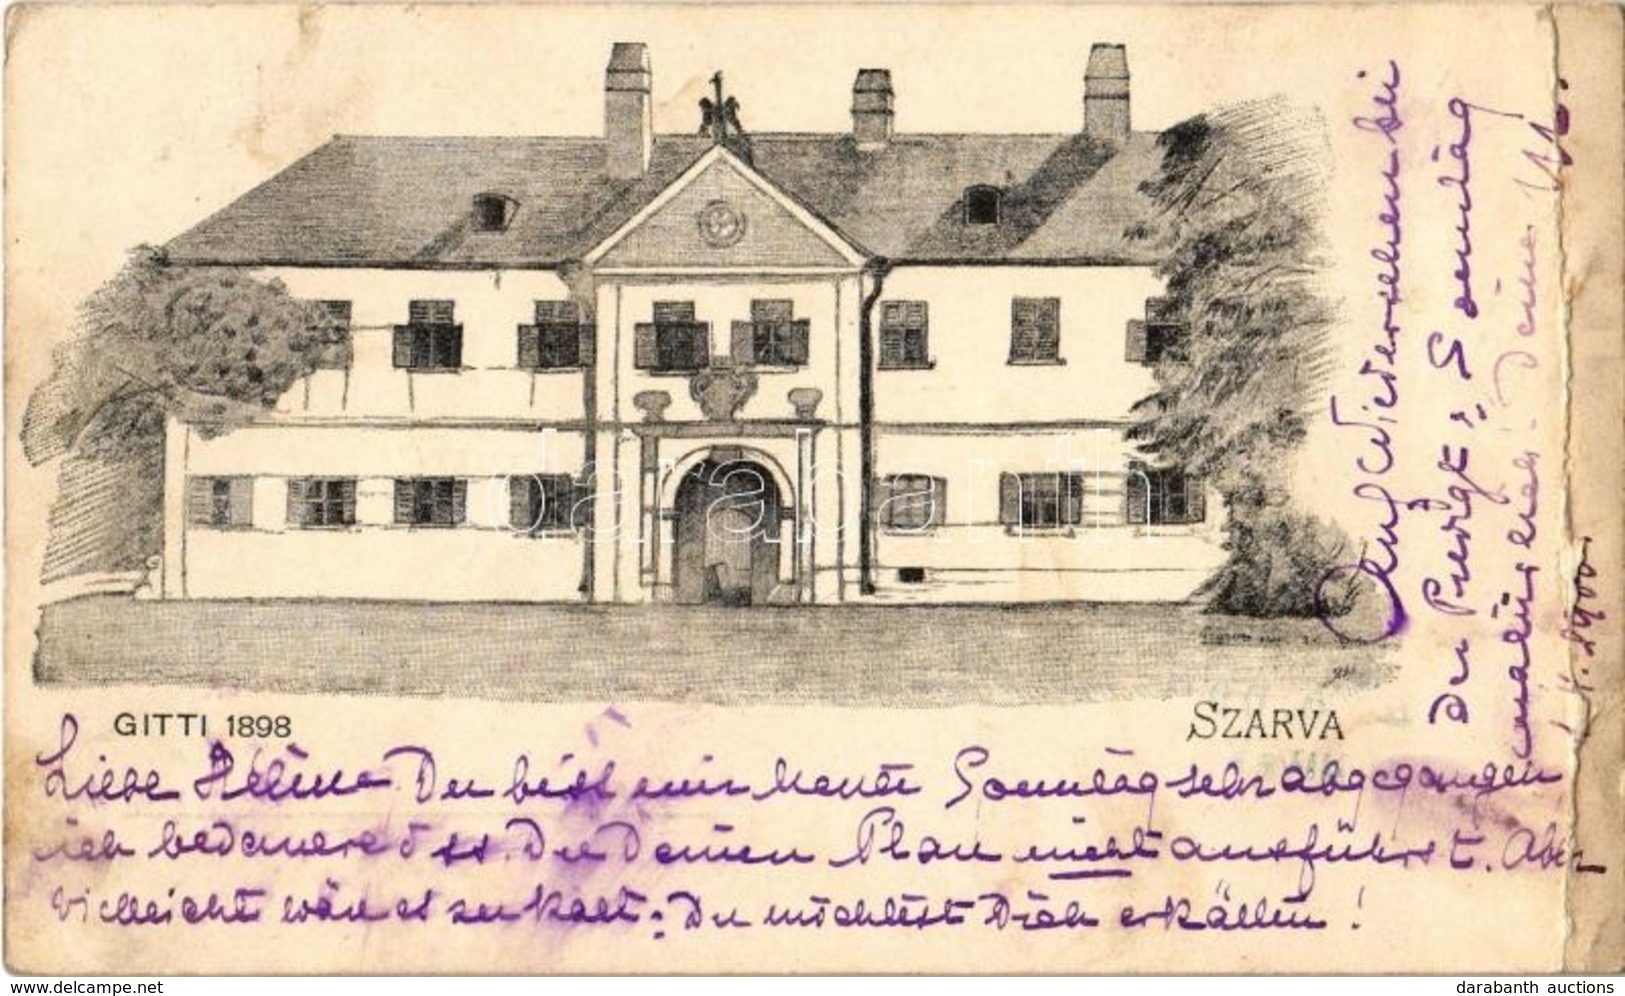 GITTI 1898
SZARVA
Liebe Helene Du bist mir heute Sonntag sehr abgegangen
ich bedauere dass Du Deinen Plan nicht ausführst. Aber
vielleicht wäre es zu kalt; Du möchtest Dich erkälten!
Auf Wiedersehen bei
der Predigt; Sonntag
Deine
1900
darabanth
delcampe.net
darabanth auctions